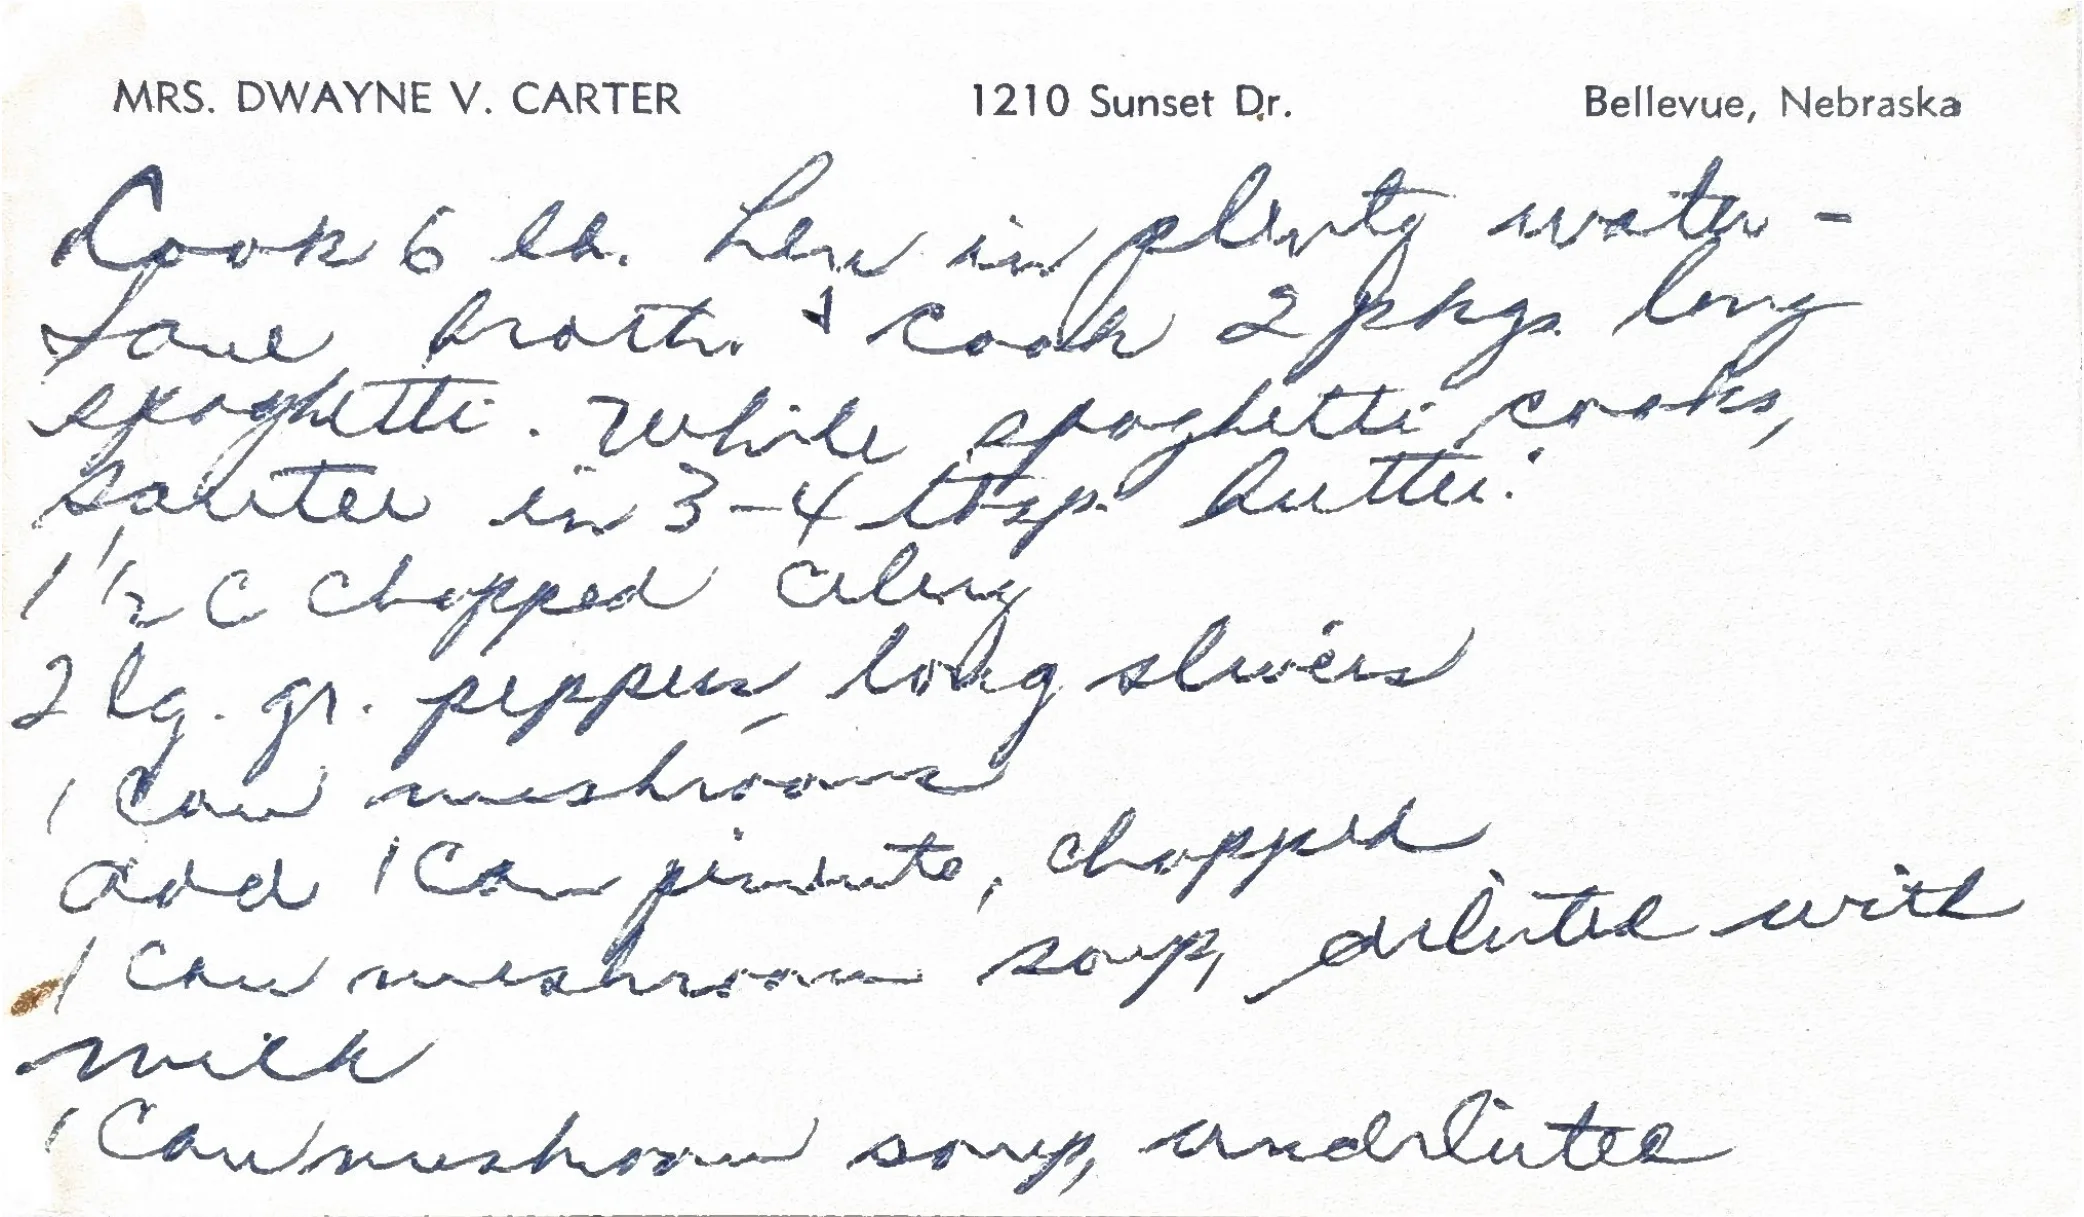 MRS. DWAYNE V. CARTER 1210 Sunset Dr. Bellevue, Nebraska
Cook 6 lb. hen in plenty water -
Save broth & cook 2 pkgs. long
spaghetti. While spaghetti cooks,
sautee in 3-4 tbsp. butter:
1 1/2 C chopped celery
2 lg. gr. peppers, long slivers
1 can mushrooms
add 1 can pimento, chopped
1 can mushroom soup, diluted with
milk
1 can mushroom soup, undiluted